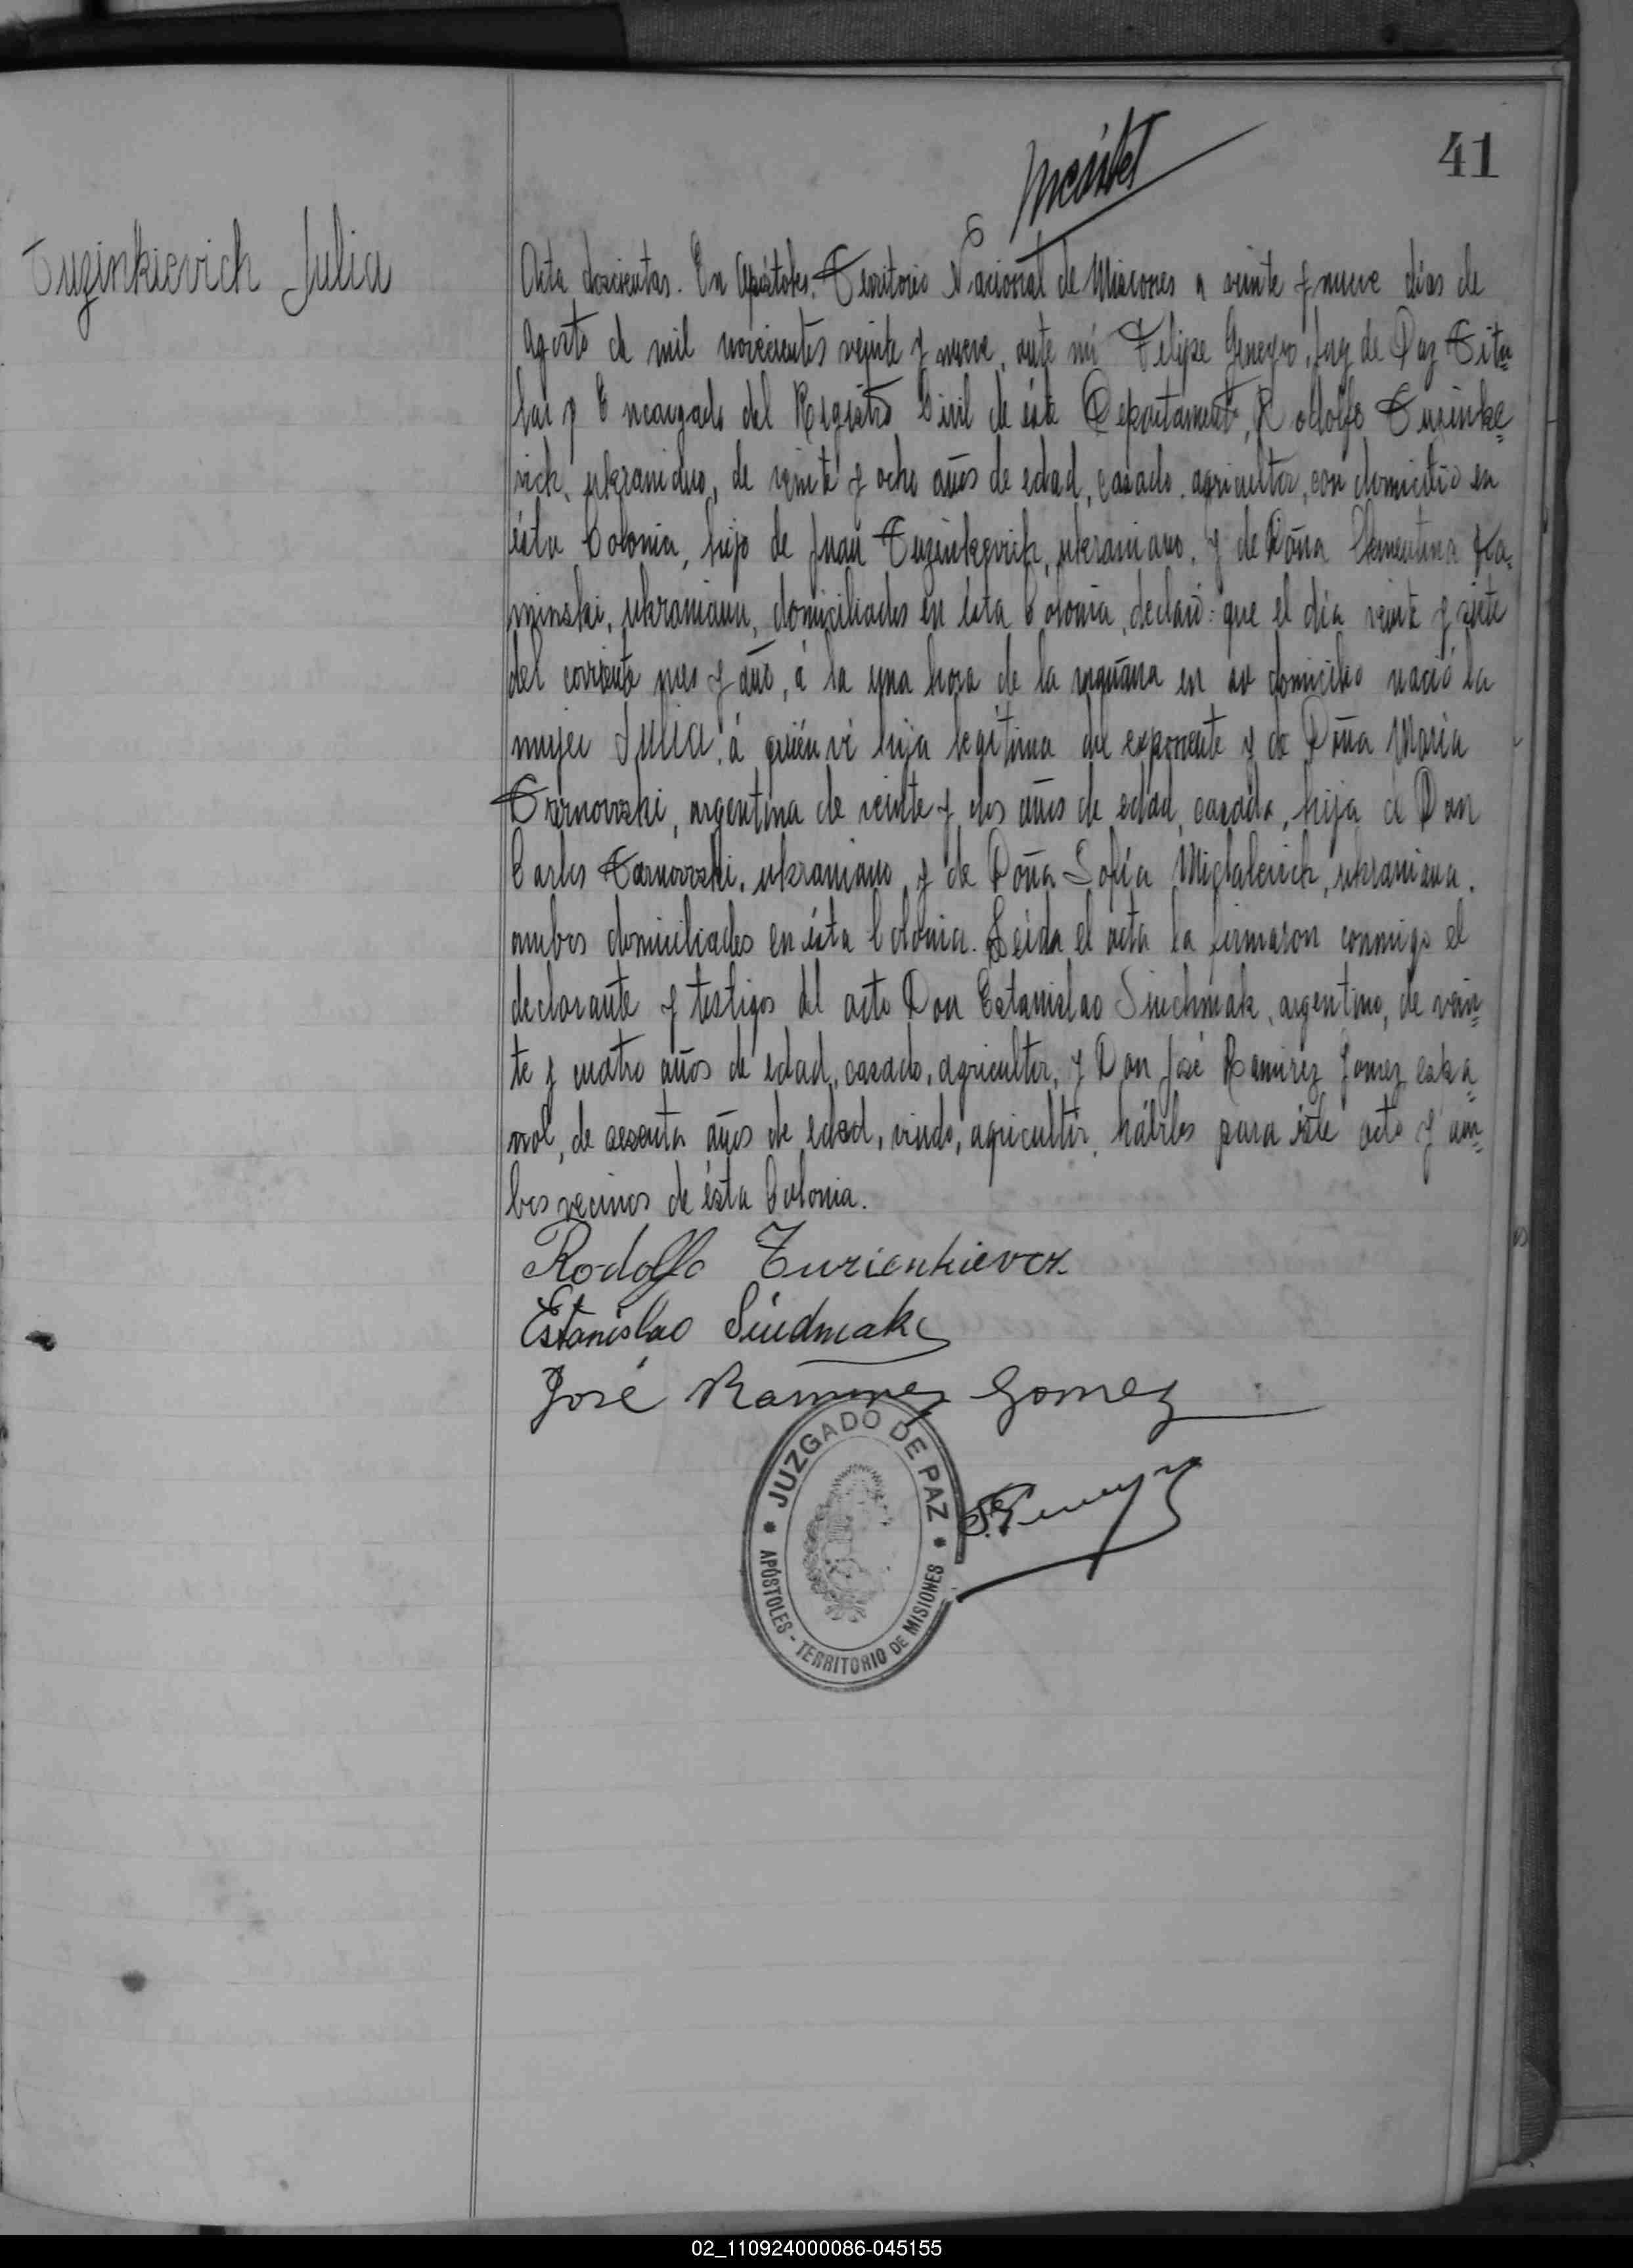 41
Tuzinkievich Julia
Acta doscientas. En Apóstoles, Territorio Nacional de Misiones a veinte y nueve días de
Agosto de mil novecientos veinte y nueve, ante mi Felipe Juez de Paz Titu=
lar y Encargado del Registro Civil de éste Departamento, Rodolfo Tuzinke=
vich, ukraniano, de veinte y ocho años de edad, casado, agricultor, con domicilio en
ésta Colonia, hijo de Juan Tuzinkevich, ukraniano, y de Doña Clementina Ka=
minski, ukraniana, domiciliados en ésta Colonia, declaró: que el día veinte y siete
del corriente mes y año, á la una hora de la mañana en su domicilio nació la
mujer Julia, á quién ví hija legítima del exponente y de Doña Maria
argentina de veinte y dos años de edad, casada, hija de Don
Carlos Tarnovski, ukraniano y de Doña Sofía ukraniana,
ambos domiciliados en ésta Colonia. Leida el acta la firmaron conmigo el
declarante y testigos del acto Don Estanislao argentino, de vein=
te y cuatro años de edad, casado, agricultor, y Don José Ramirez Gomez, espa=
ñol, de sesenta años de edad, viudo, agricultor, hábiles para éste acto y am=
bos vecinos de ésta Colonia.
Rodolfo
Estanislao
José Ramirez Gomez
JUZGADO DE PAZ
APÓSTOLES - TERRITORIO DE MISIONES
02_110924000086-045155